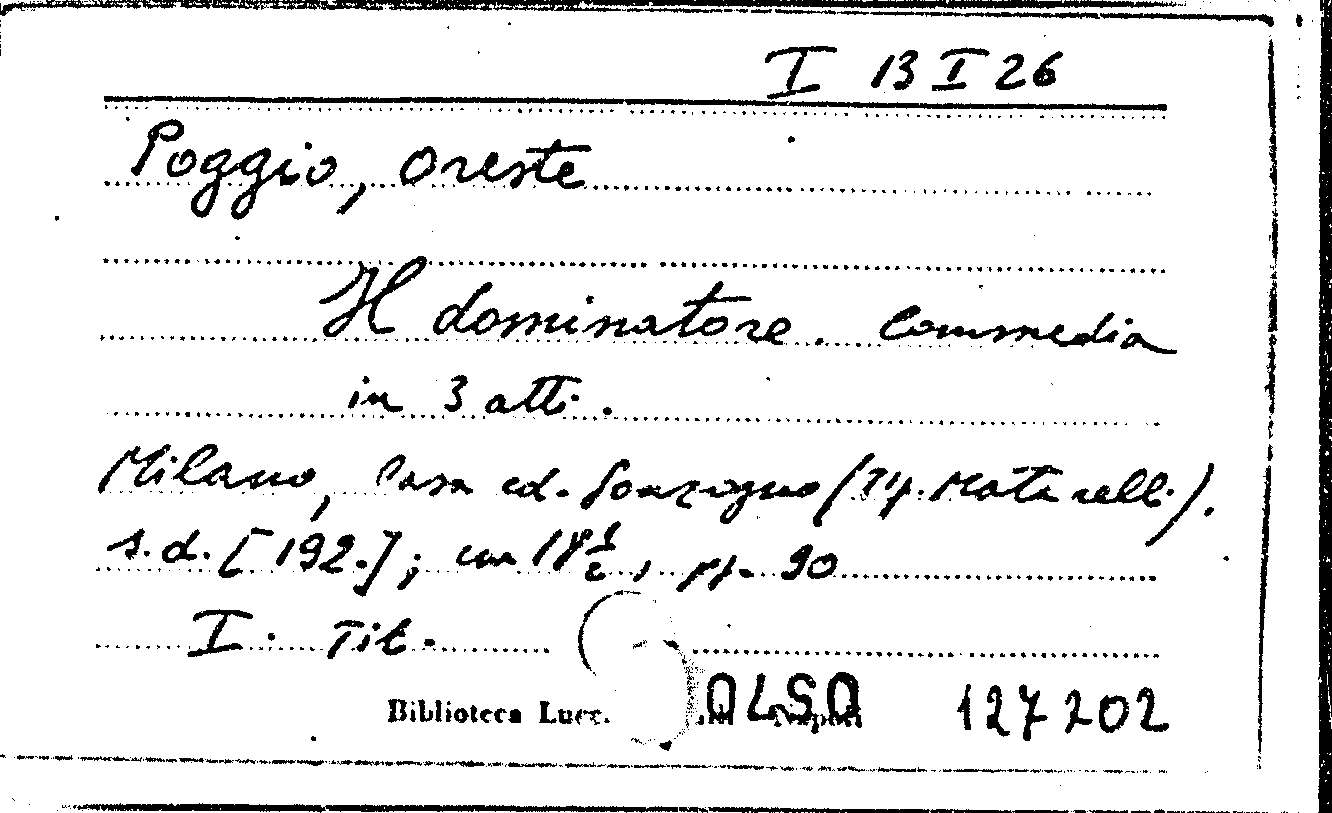 I 13 I 26
Poggio, Oreste
Il dominatore. Commedia
in 3 atti.
Milano, Casa ed. Sonzogno (Tip. Matarelli).
s.d. [192.]; cm 18½, pp. 90
I. Tit.
Biblioteca Lucc. Napoli
127202